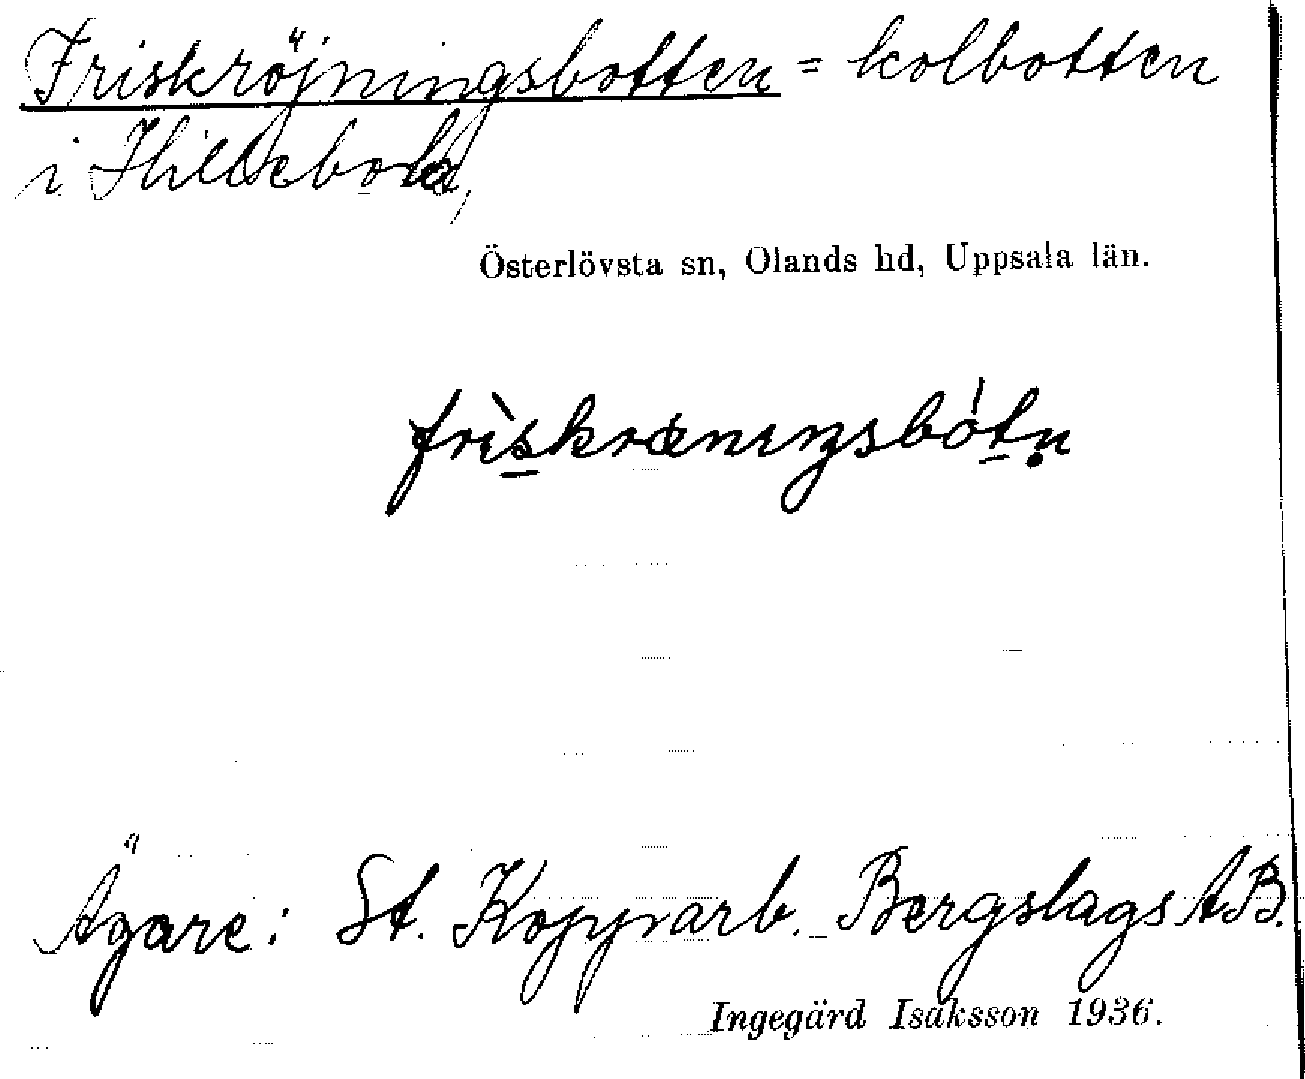 Friskröjningsbotten = kolbotten
i Hillebola,
Österlövsta sn, Olands hd, Uppsala län.
friskrœnıŋsbòtn̥
Ägare: St. Kopparb. Bergslags AB.
Ingegärd Isaksson 1936.